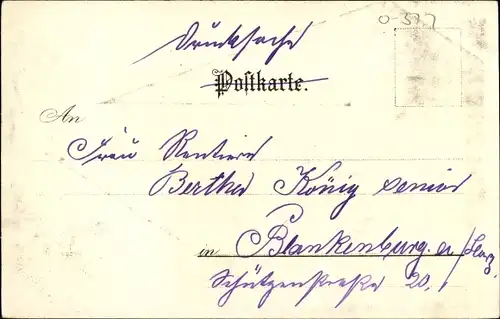 0-577
Drucksache
Postkarte.
An
Frau Rentiere
Bertha König senior
in Blankenburg. a/Harz.
Schützenstraße 20.